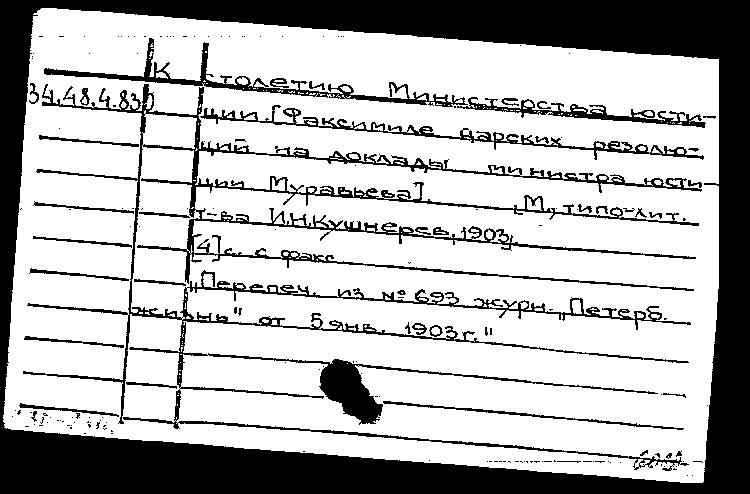 К столетию Министерства юсти-
34.48.4.830
ции.[Факсимиле царских резолю-
ций на доклады министра юсти-
ции Муравьева]. [М., типо-лит.
т-ва И.Н.Кушнерев, 1903].
[4]с. с факс
„Перепеч. из № 693 журн. „Петерб.
жизнь" от 5 янв. 1903г."